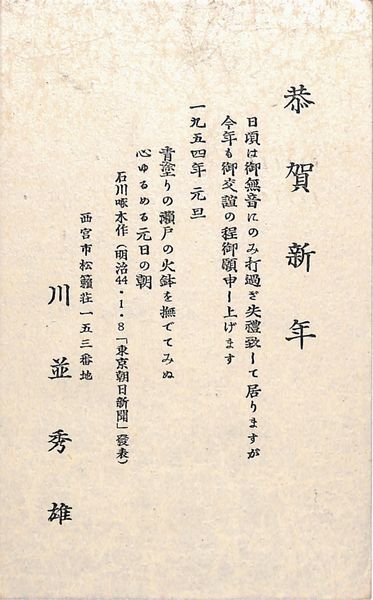 恭賀新年
日頃は御無音にのみ打過ぎ失禮致して居りますが
今年も御交誼の程御願申し上げます
一九五四年 元旦
青塗りの瀬戸の火鉢を撫でてみぬ
心ゆるめる元日の朝
石川啄木作(明治44・1・8「東京朝日新聞」發表)
西宮市松籟荘一五三番地
川並秀雄